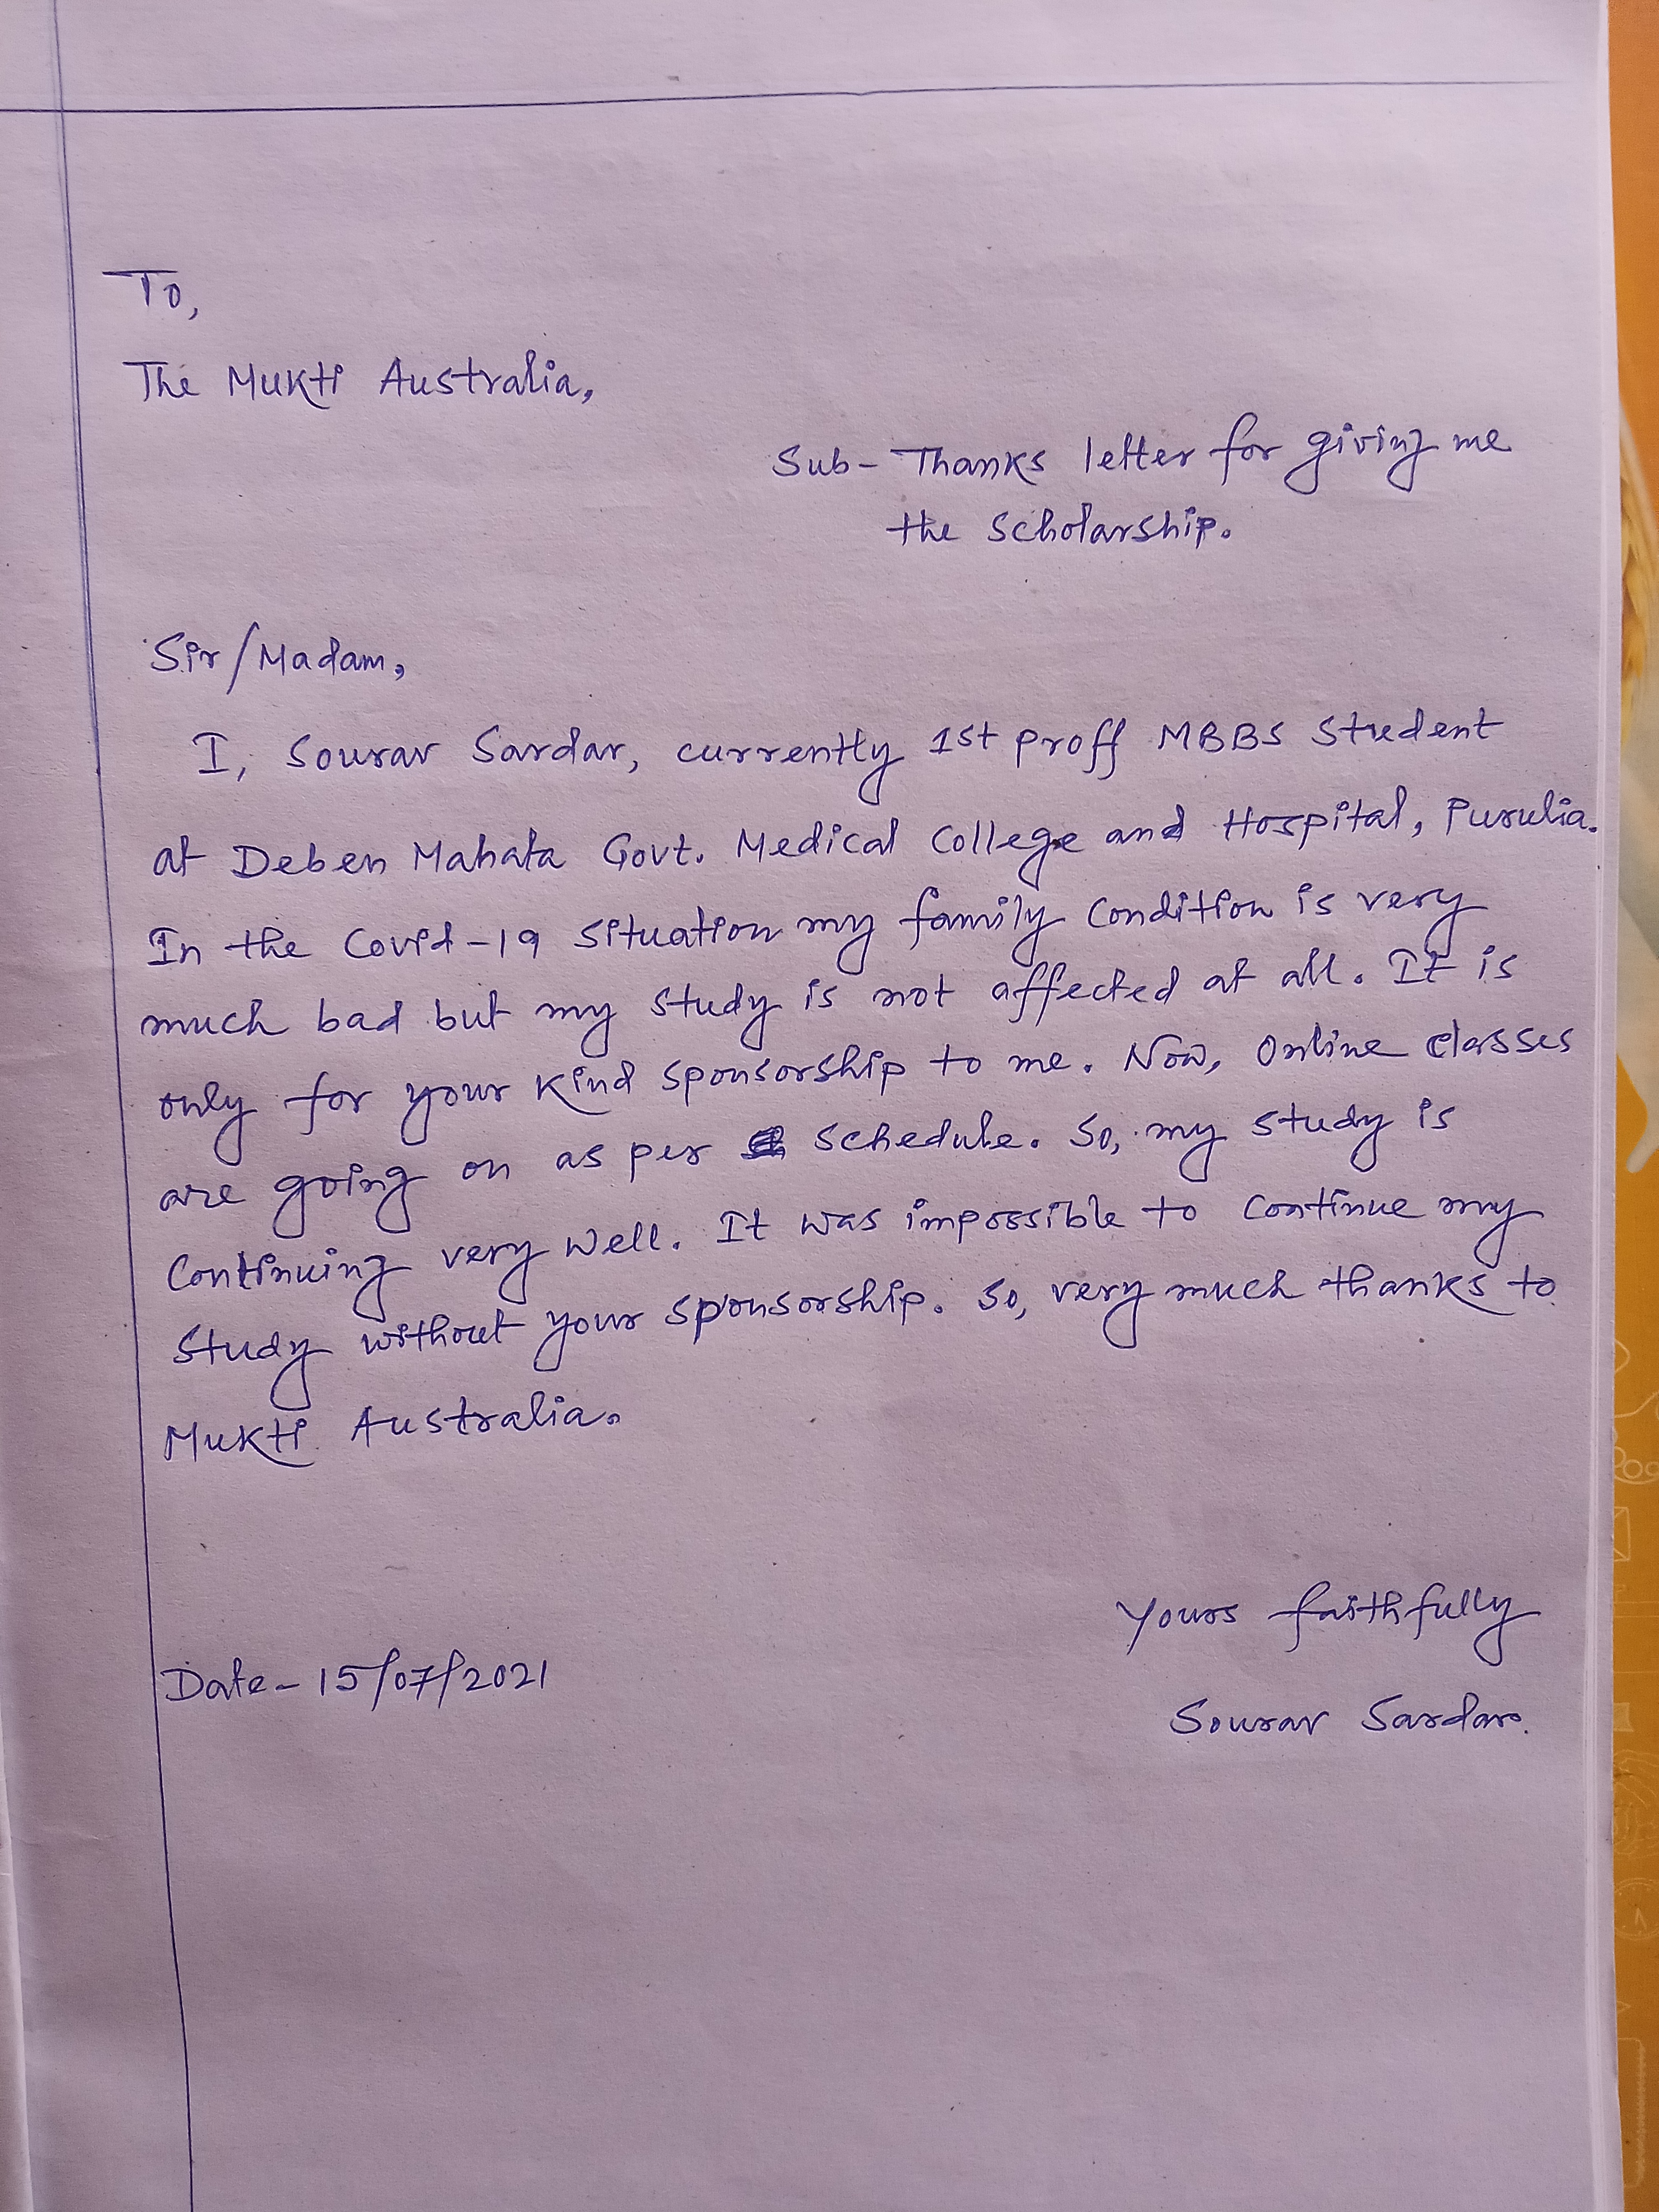 To,
The Mukti Australia,
Sub- Thanks letter for giving me
the Scholarship.
Sir/Madam,
I, Sourav Sardar, currently 1st proff MBBS Student
at Deben Mahata Govt. Medical College and Hospital, Purulia.
In the Covid-19 situation my family condition is very
much bad but my study is not affected at all. It is
only for your kind sponsorship to me. Now, Online classes
are going on as per schedule. So, my study is
Continuing very well. It was impossible to continue my
study without your sponsorship. So, very much thanks to
Mukti Australia.
Yours faithfully
Date- 15/07/2021
Sourav Sardar.